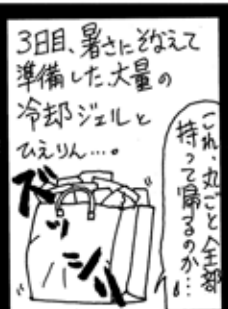 3日目、暑さにそなえて
準備した、大量の
冷却ジェルと
ひえりん…。
これ、丸ごと全部
持って帰るのか…
ズッシリ